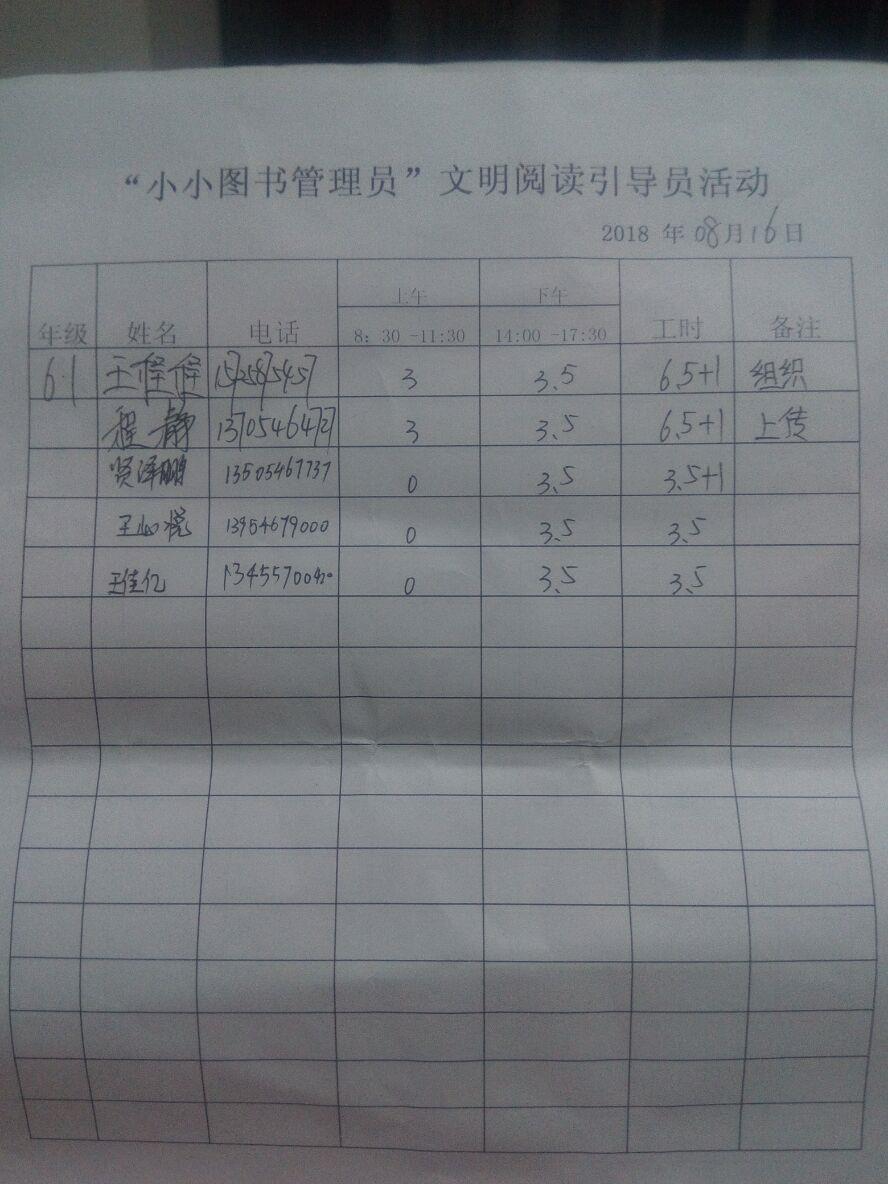 “小小图书管理员”文明阅读引导员活动
2018 年 08月16日
年级 姓名 电话 上午 8：30 -11:30 下午 14:00 -17:30 工时 备注
6.1 3 3.5 6.5+1 组织
程静 13705464727 3 3.5 6.5+1 上传
贤泽鹏 13505467737 0 3.5 3.5+1
王心悦 13954679000 0 3.5 3.5
王佳亿 0 3.5 3.5